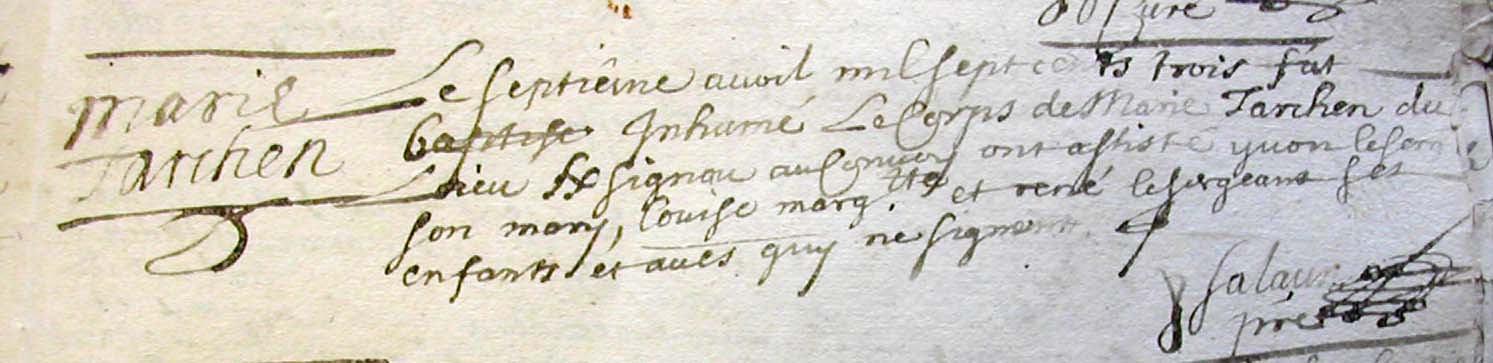 Curé
marie
Tarchen
Le septiême avvil mil sept cents trois fut
baptise Inhumé Le Corps de Marie Tarchen du
Lieu signou au Convoy ont assisté yvon leserg
son mary, Louise marg.tte et rené lesergeant ses
enfants et aues quy ne signent.
y salaun
pre